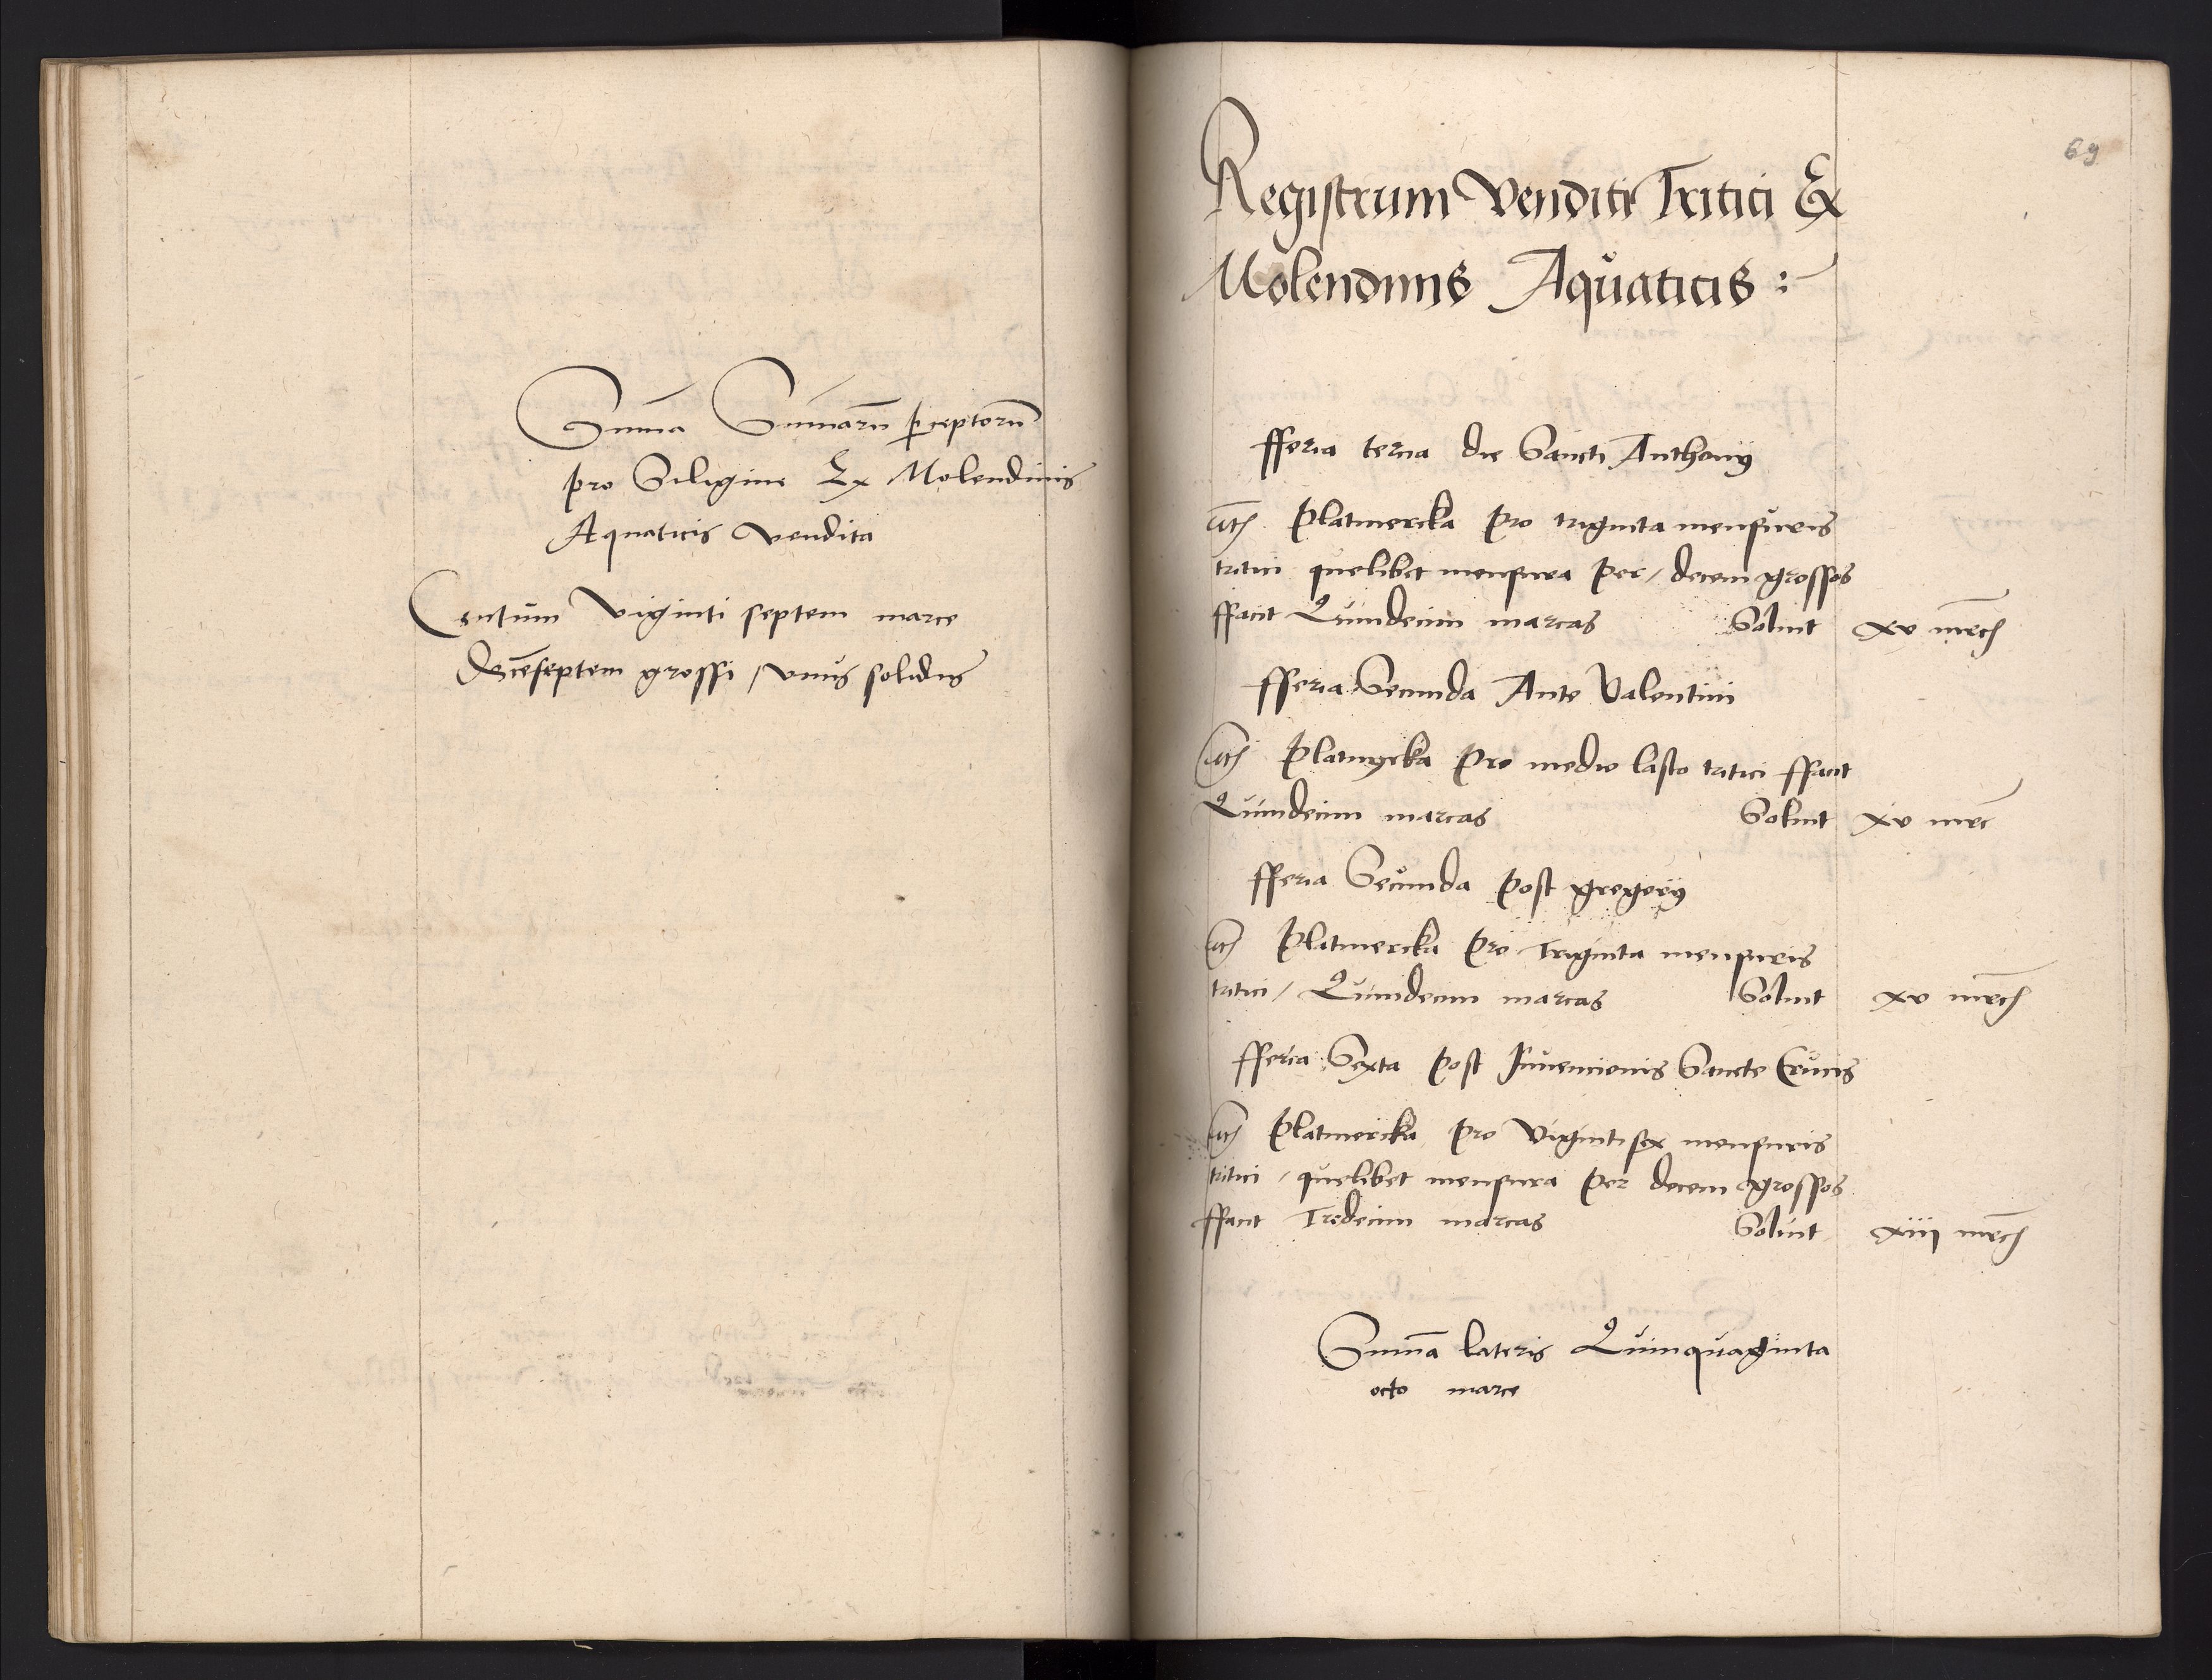 Suma Sumaru perceptoru
pro Siligine Ex Molendinis
Aquaticis vendita
Centum viginti septem marce
Deceseptem grossi / vnus solidus
69
Registrum Venditi Tritici Ex
Molendinis Aquaticis :
fferia tercia die Sancti Anthonij
Platmercka pro triginta mensuris
tritici quelibet mensura per / decem grossos
ffacit Quindecim marcas Soluit xv mrc
fferia Secunda Ante Valentini
Platmyrcka pro medio lasto tritici ffacit
Quindecim marcas Soluit xv mrc
fferia Secunda post gregorij
Platmercka pro Triginta mensuris
tritici / Quindecim marcas Soluit xv mrc
fferia Sexta post Jnuencionis Sancte Crucis
Platmercka pro viginti sex mensuris
tritici / quelibet mensura per decem grossos
ffacit Tredecim marcas Soluit xiij mrc
Suma lateris Quinquaginta
octo marce